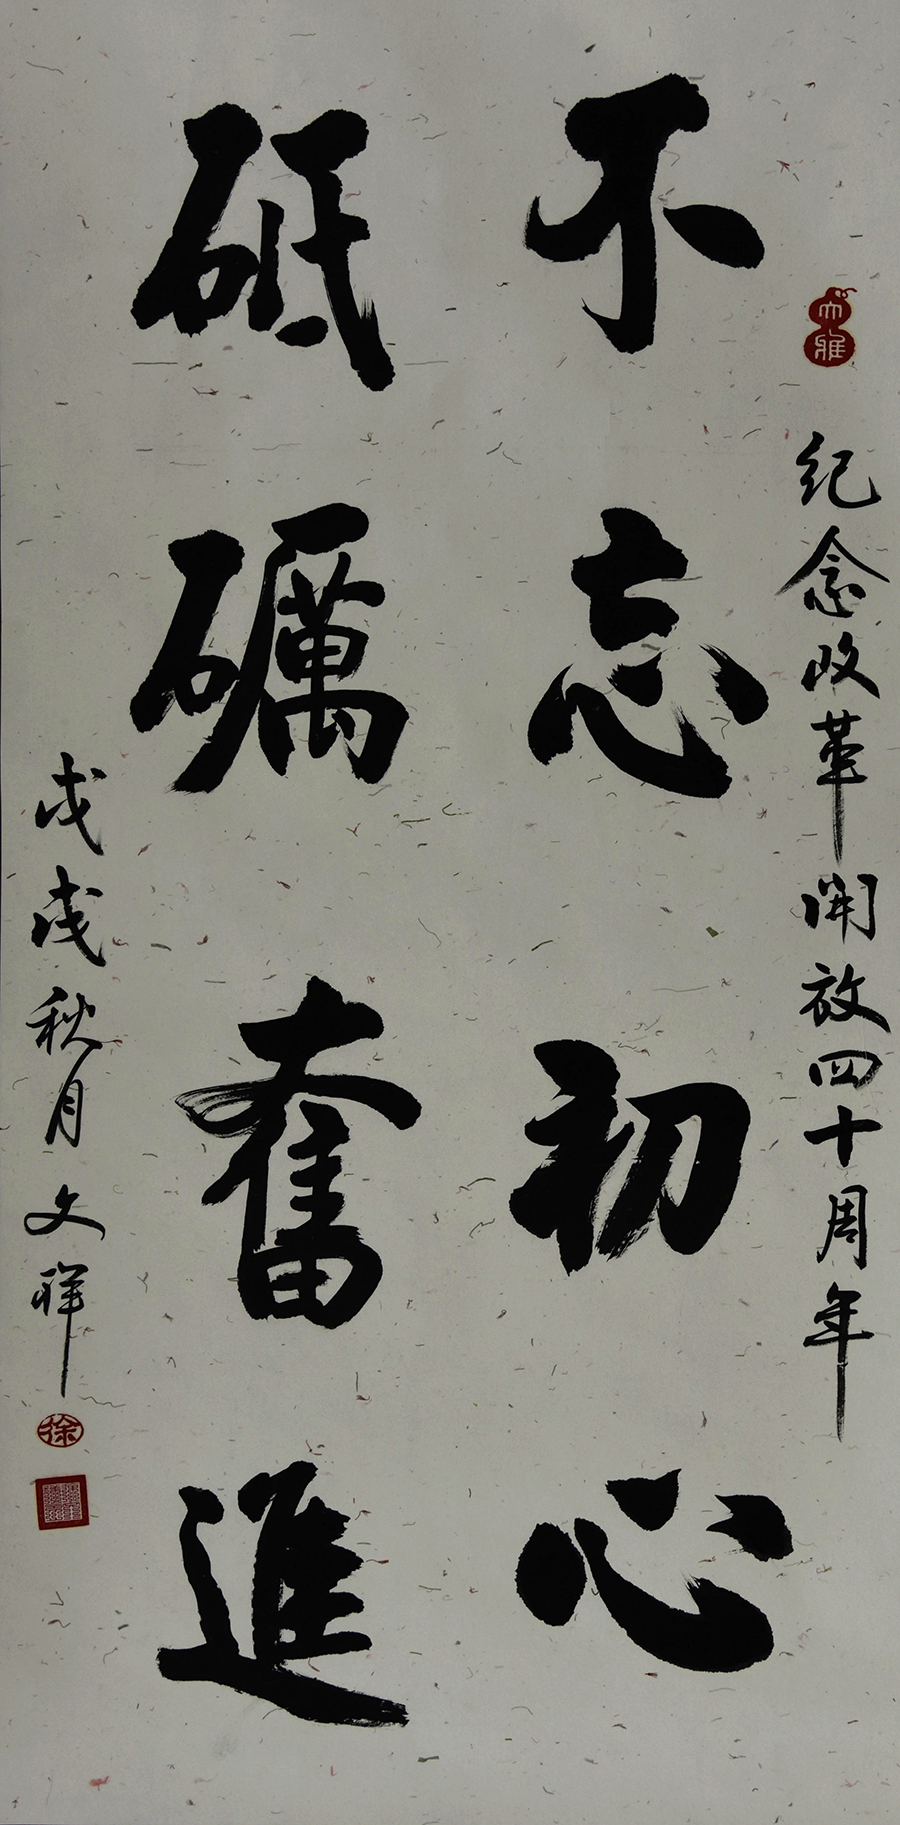 大雅
紀念改革開放四十周年
不忘初心
砥礪奮進
戊戌秋月文祥
徐